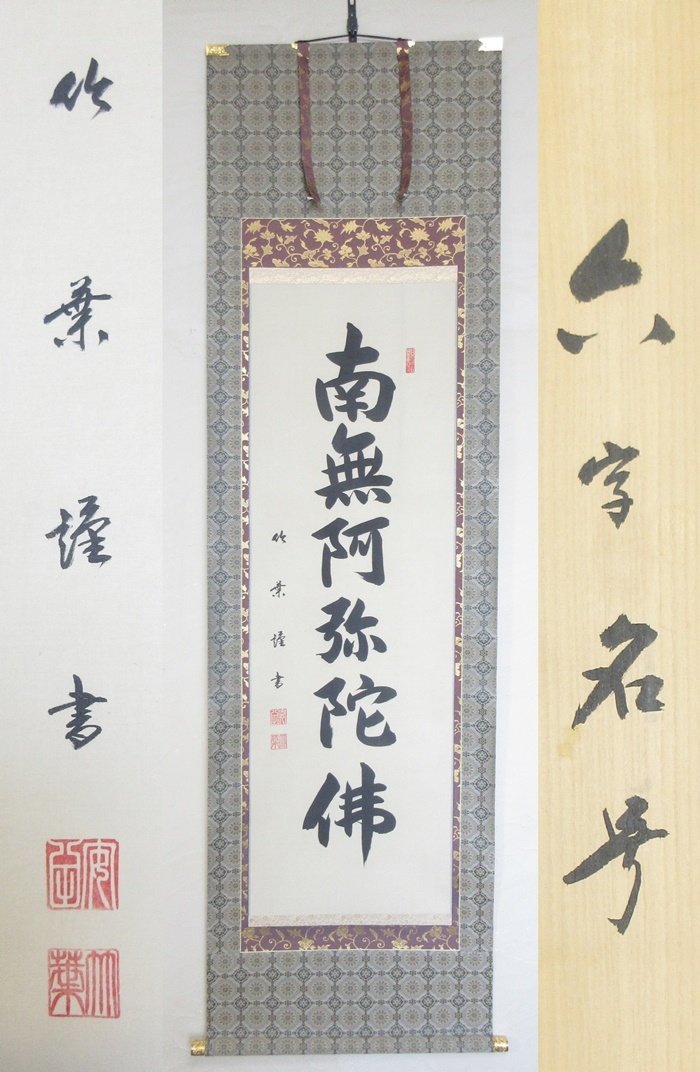 六字名号
南無阿弥陀佛
竹葉謹書
竹葉謹書
竹葉